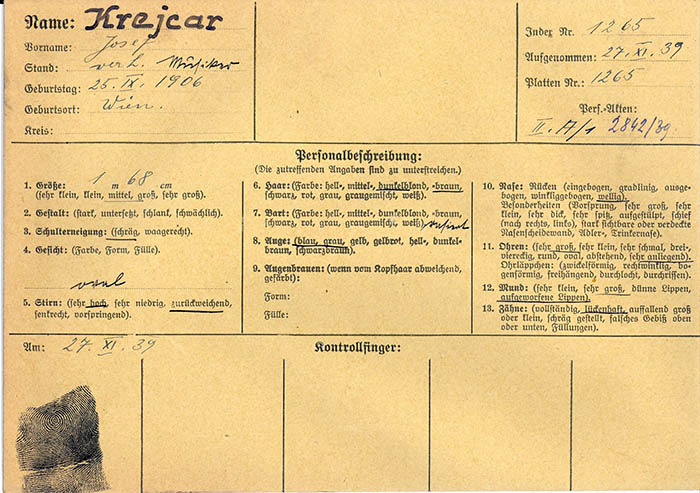 Name: Krejcar
Vorname: Josef
Stand: verh. Musiker
Geburtstag: 25. IX. 1906
Geburtsort: Wien.
Kreis:
Index Nr. 1265
Aufgenommen: 27. XI. 39
Platten Nr.: 1265
Pers.-Akten:
II. A/1 2842/39
Personalbeschreibung:
(Die zutreffenden Angaben sind zu unterstreichen.)
1. Größe: 1 m 68 cm
(sehr klein, klein, mittel, groß, sehr groß).
2. Gestalt: (stark, untersetzt, schlank, schwächlich).
3. Schulterneigung: (schräg, waagerecht).
4. Gesicht: (Farbe, Form, Fülle).
oval
5. Stirn: (sehr hoch, sehr niedrig, zurückweichend,
senkrecht, vorspringend).
6. Haar: (Farbe: hell-, mittel-, dunkelblond, -braun,
schwarz, rot, grau, graugemischt, weiß).
7. Bart: (Farbe: hell-, mittel-, dunkelblond, -braun,
schwarz, rot, grau, graugemischt, weiß). rasiert
8. Auge: (blau, grau, gelb, gelbrot, hell-, dunkel-
braun, schwarzbraun).
9. Augenbrauen: (wenn vom Kopfhaar abweichend,
gefärbt):
Form:
Fülle:
10. Nase: Rücken (eingebogen, gradlinig, ausge-
bogen, winkliggebogen, wellig).
Besonderheiten (Vorsprung, sehr groß, sehr
klein, sehr dick, sehr spitz, aufgestülpt, schief
(nach rechts, links), stark sichtbare oder verdeckte
Nasenscheidewand, Adler-, Trinkernase).
11. Ohren: (sehr groß, sehr klein, sehr schmal, drei-,
viereckig, rund, oval, abstehend, sehr anliegend).
Ohrläppchen: (zwickelförmig, rechtwinklig, bo-
genförmig, freihängend, durchlocht, durchriffen).
12. Mund: (sehr klein, sehr groß, dünne Lippen,
aufgeworfene Lippen).
13. Zähne: (vollständig, lückenhaft, auffallend groß
oder klein, schräg gestellt, falsches Gebiß oben
oder unten, Füllungen).
Am: 27. XI. 39
Kontrollfinger: